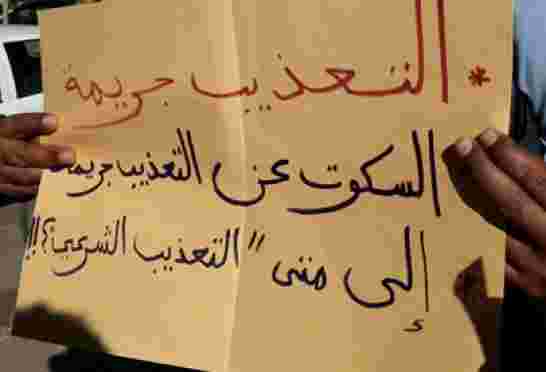 * التعذيب جريمة
السكوت عن التعذيب جريمة
إلى متى "التعذيب الشرعي؟!!